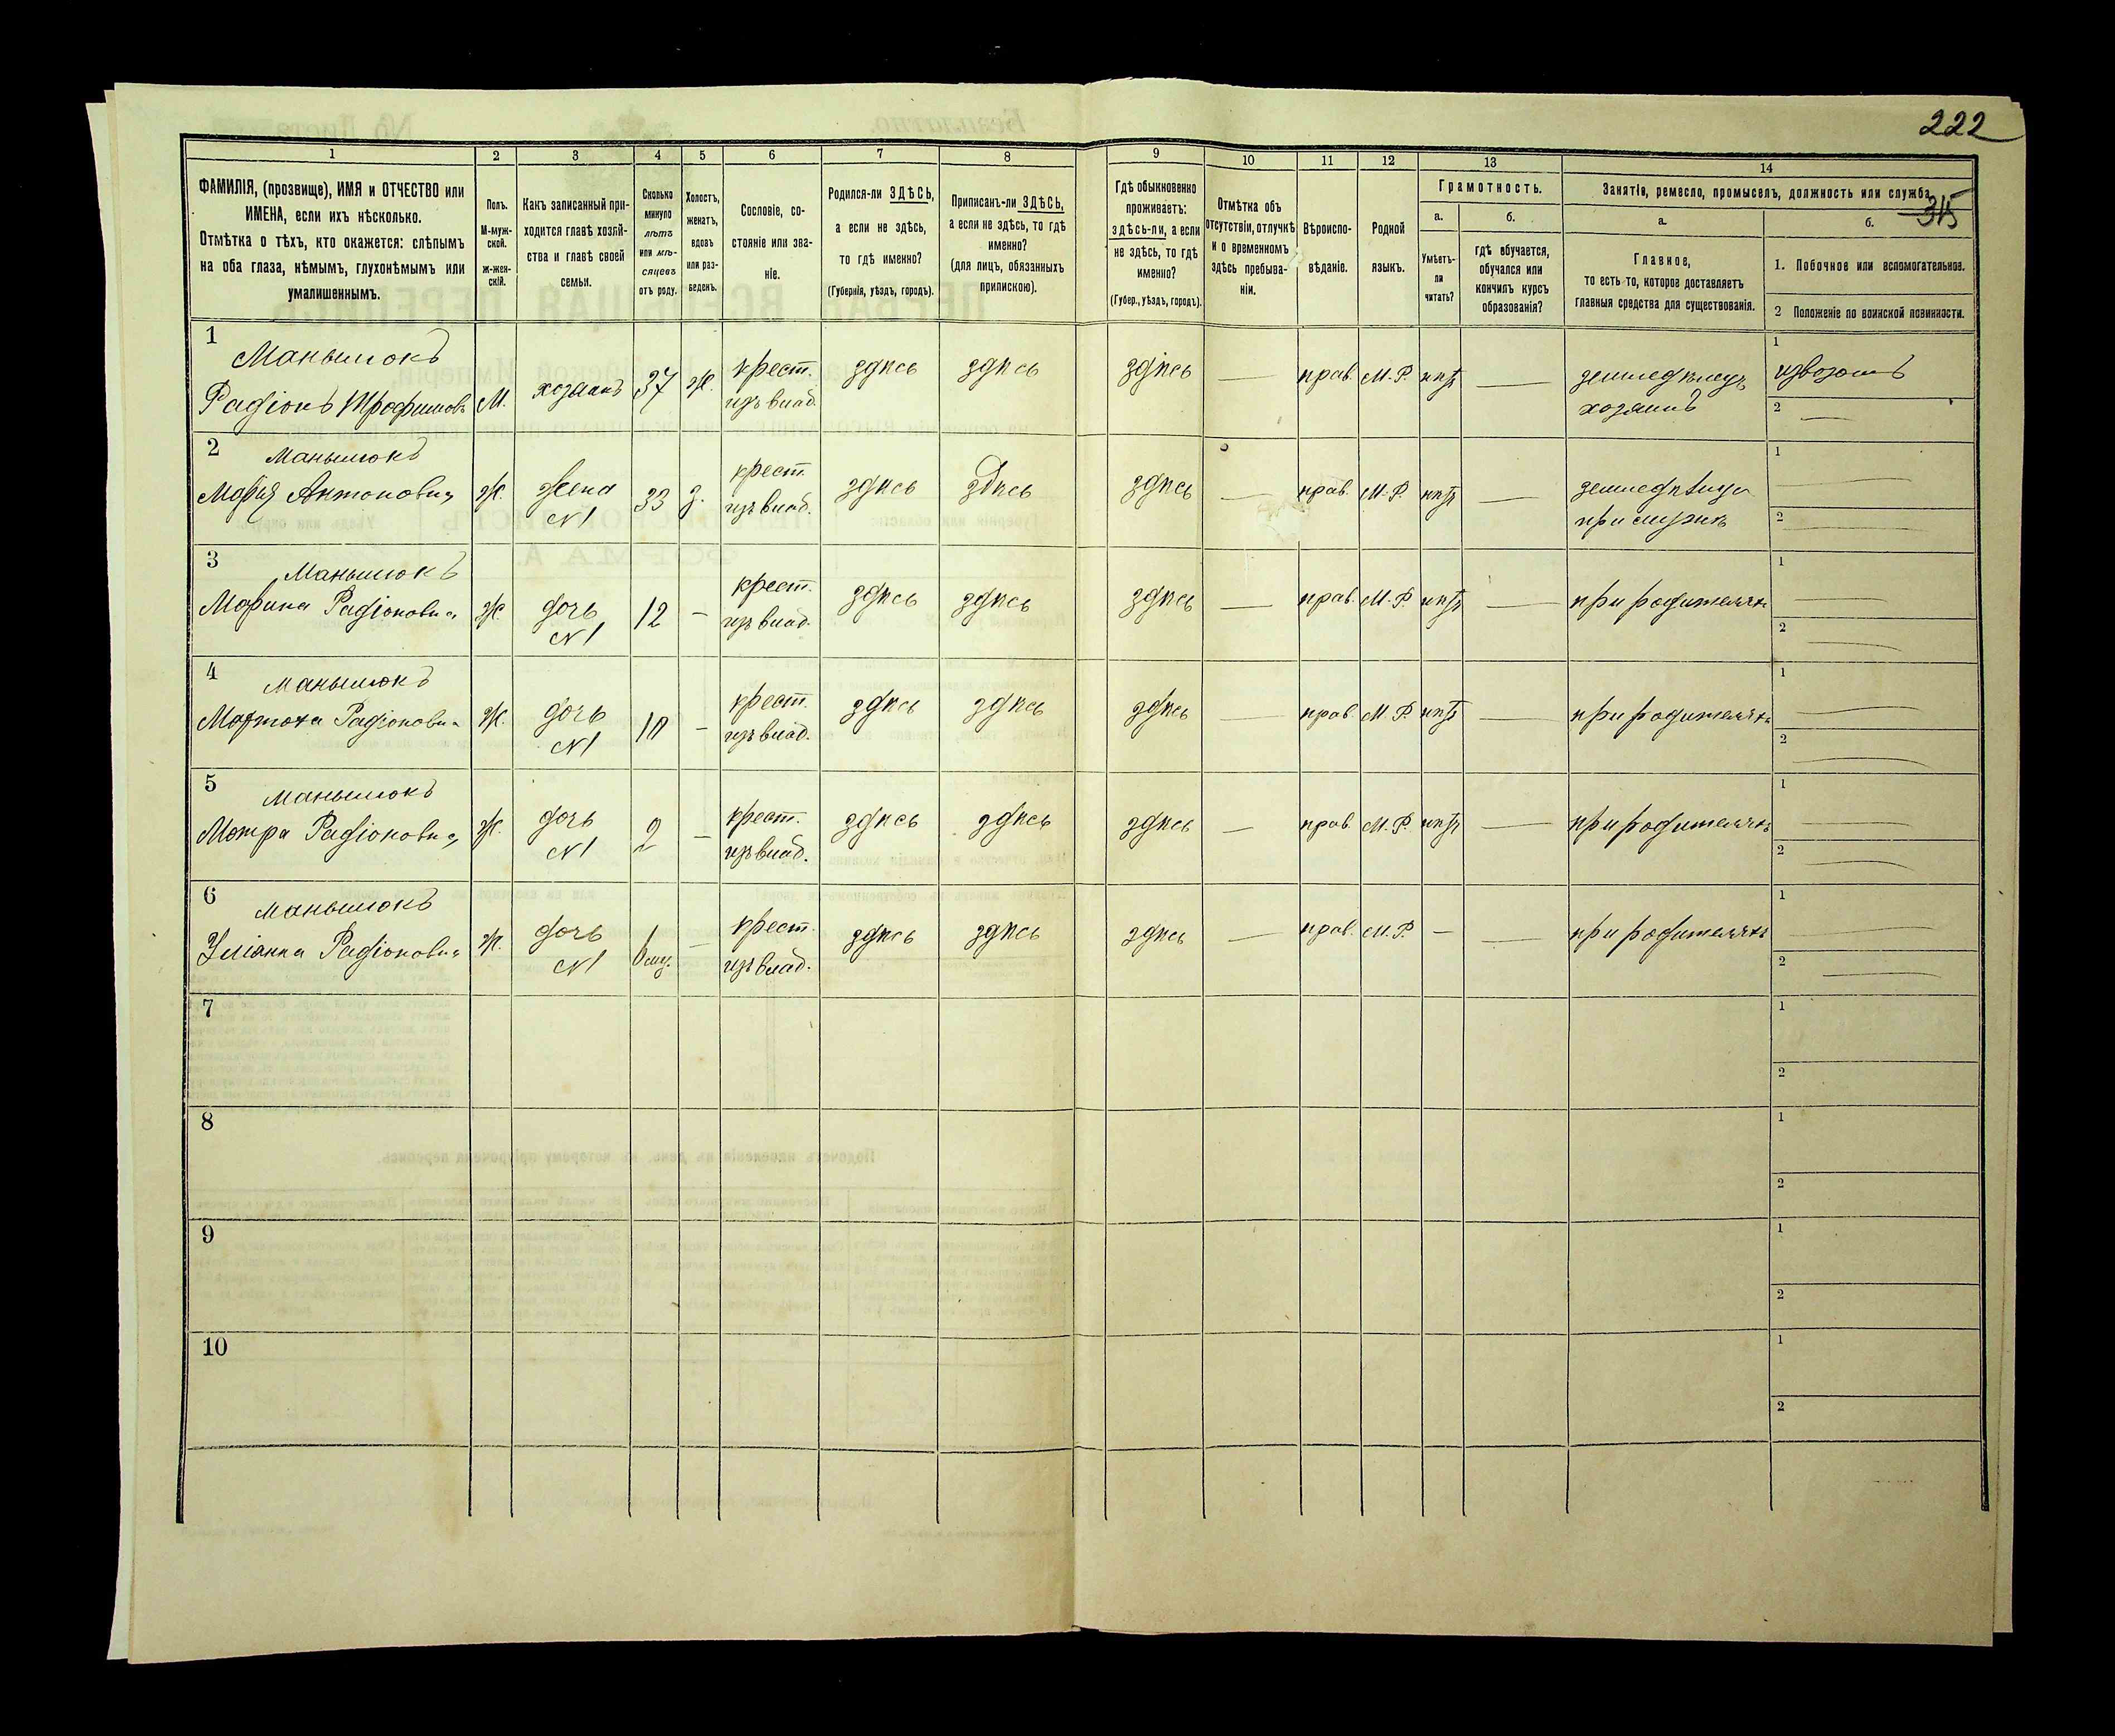 222
1 2 3 4 5 6 7 8 9 10 11 12 13 14
315
ФАМИЛІЯ, (прозвище), ИМЯ и ОТЧЕСТВО или
ИМЕНА, если ихъ нѣсколько.
Отмѣтка о тѣхъ, кто окажется: слѣпымъ
на оба глаза, нѣмымъ, глухонѣмымъ или
умалишеннымъ.
Полъ.
М-муж-
ской.
ж-жен-
скій.
Какъ записанный при-
ходится главѣ хозяй-
ства и главѣ своей
семьи.
Сколько
минуло
лѣтъ
или мѣ-
сяцевъ
отъ роду.
Холостъ,
женатъ,
вдовъ
или раз-
веденъ.
Сословіе, со-
стояніе или зва-
ніе.
Родился-ли ЗДѢСЬ,
а если не здѣсь,
то гдѣ именно?
(Губернія, уѣздъ, городъ).
Приписанъ-ли ЗДѢСЬ,
а если не здѣсь, то гдѣ
именно?
(для лицъ, обязанныхъ
припискою).
Гдѣ обыкновенно
проживаетъ:
здѣсь-ли, а если
не здѣсь, то гдѣ
именно?
(Губер., уѣздъ, городъ).
Отмѣтка объ
отсутствіи, отлучкѣ
и о временномъ
здѣсь пребыва-
ніи.
Вѣроиспо-
вѣданіе.
Родной
языкъ.
Грамотность.
а.
Умѣетъ-
ли
читать?
б.
гдѣ обучается,
обучался или
кончилъ курсъ
образованія?
Занятіе, ремесло, промыселъ, должность или служба.
а.
Главное,
то есть то, которое доставляетъ
главныя средства для существованія.
б.
1. Побочное или вспомогательное.
2 Положеніе по воинской повинности.
1 Манылюкъ крест. здѣсь здѣсь здѣсь — прав. М.Р. нѣтъ — земледѣлецъ 1 извозомъ
Радіонъ Трофимовъ М. хозяинъ 37 Ж. изъ влад. хозяинъ 2 —
2 Манылюкъ крест. здѣсь здѣсь здѣсь — прав. М.Р. нѣтъ — 1 —
Марія Антонова Ж. жена 33 З. изъ влад. при мужѣ 2 —
N1
3 Манылюкъ крест. здѣсь здѣсь здѣсь — прав. М.Р. нѣтъ — при родителяхъ 1 —
Марина Радіонова Ж. дочь 12 — изъ влад. 2 —
N1
4 Манылюкъ крест. здѣсь здѣсь здѣсь — прав. М.Р. нѣтъ — при родителяхъ 1 —
Радіонова Ж. дочь 10 — изъ влад. 2 —
N1
5 Манылюкъ крест. здѣсь здѣсь здѣсь — прав. М.Р. нѣтъ — при родителяхъ 1 —
Мотра Радіонова Ж. дочь 2 — изъ влад. 2 —
N1
6 Манылюкъ крест. здѣсь здѣсь здѣсь — прав. М.Р. — — при родителяхъ 1 —
Уліанна Радіонова Ж. дочь — изъ влад. 2 —
N1
7 1
2
8 1
2
9 1
2
10 1
2